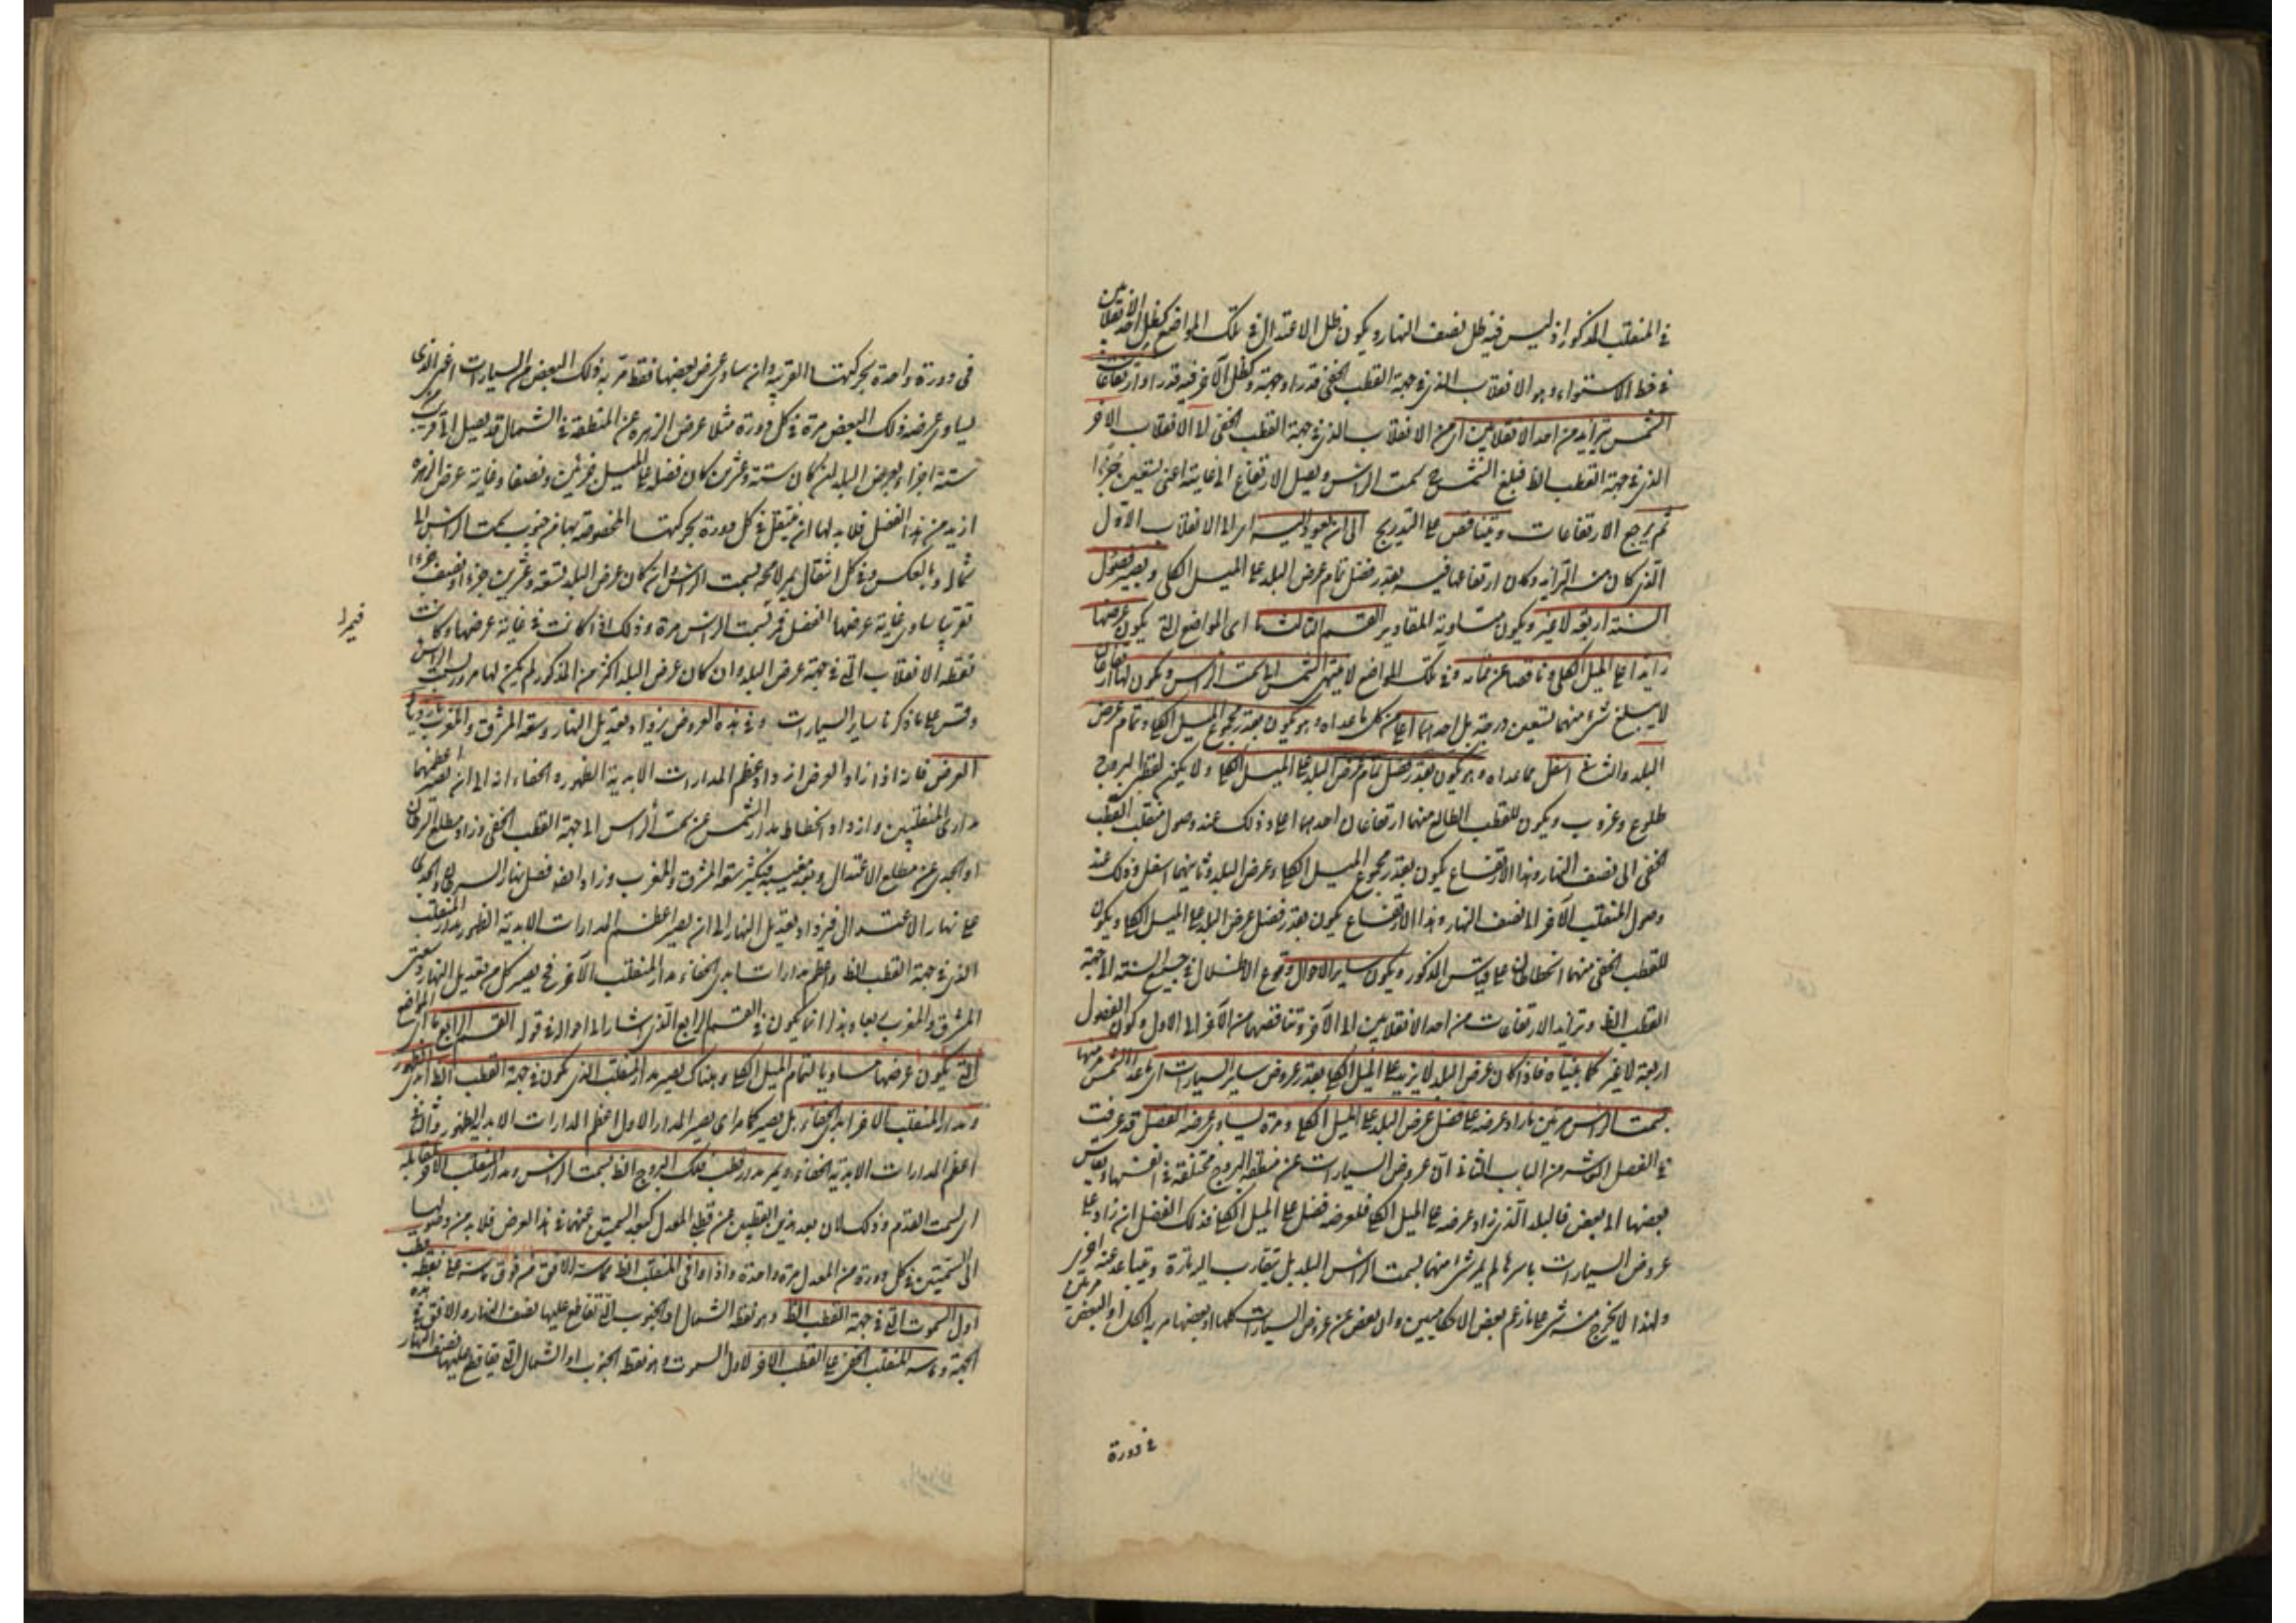 في المنقلب المذكور اذ ليس فيه ظل نصف النهار ويكون ظل الاعتدال في تلك المواضع كظل احد الانقلابين
في خط الاستواء وهو الانقلاب الذي في جهة القطب الخفي قدرا وجهة وكظل الآخر فيه قدرا وارتفاعات
الشمس تتزايد من احد الانقلابين اي من الانقلاب الذي في جهة القطب الخفي الى الانقلاب الآخر
الذي في جهة القطب الظ فبلغ الشمس ح سمت الراس ويصل الارتفاع الى غايته اعني تسعين جزءا
ثم يرجع الارتفاعات ويتناقص على التدريج الى ان يعود اليه اي الى الانقلاب الاول
الذي كان منه التزايد وكان ارتفاعها فيه بقدر فضل تمام عرض البلد على الميل الكلي ويصير فصول
السنة اربعة لا غير ويكون متساوية المقادير القسم الثالث اي المواضع التي يكون عرضها
زايدا على الميل الكلي وناقصا عن تمامه وفي تلك المواضع لا ينتهي الشمس الى سمت الراس ويكون لها ارتفاعان
لا يبلغ شئ منهما تسعين درجة بل احدهما اعلى من كل ما عداه وهو يكون بقدر مجموع الميل الكلي وتمام عرض
البلد والثاني اسفل مما عداه وهو يكون بقدر فضل تمام عرض البلد على الميل الكلي ولا يكون لقطبي البروج
طلوع وغروب ويكون للقطب الظاهر منهما ارتفاعان احدهما اعلى وذلك عند وصول منقلب القطب
الخفي الى نصف النهار وهذا الارتفاع يكون بقدر مجموع الميل الكلي وعرض البلد وثانيهما اسفل وذلك عند
وصول المنقلب الآخر الى نصف النهار وهذا الارتفاع يكون بقدر فضل عرض البلد على الميل الكلي ويكون
للقطب الخفي منهما انحطاطان على قياس المذكور ويكون ساير الاحوال وقوع الاظلال في جميع السنة الى جهة
القطب الظ وتزايد الارتفاعات من احد الانقلابين الى الآخر وتناقصها من الآخر الى الاول وكون الفصول
اربعة لا غير كما بيناه فاذا كان عرض البلد لا يزيد على الميل الكلي بقدر عروض ساير السيارات اي ما عدا الشمس منها
بسمت الراس مرتين ما زاد عرضه على فضل عرض البلد على الميل الكلي ومرة ما يساوي عرضه الفضل قد عرفت
في الفصل العاشر من الباب الثاني ان عروض السيارات عن منطقة البروج مختلفة في انفسها وبقياس
بعضها الى بعض فالبلد الذي زاد عرضه على الميل الكلي فلعرضه فضل على الميل الكلي فذلك الفضل ان زاد على
عروض السيارات باسرها لم يمر شئ منها بسمت الراس البلد بل يتقارب اليه تارة ويتباعد عنه اخرى
ولهذا لا يخرج منه شئ على ما زعم بعض الاحكاميين وان نقص عن عروض السيارات كلها او بعضها مر به الكل او البعض مرتين
في دورة
في دورة واحدة بحركتها القريبة وان ساوى عرض بعضها فقط مر به ذلك البعض من السيارات اعني الذي
يساوي عرضه ذلك البعض مرة في كل دورة مثلا عرض الزهرة عن المنطقة في الشمال قد يصل الى قريب
ستة اجزاء وعرض البلد ان كان ستة وعشرين كان فضله على الميل جزئين ونصفا وغاية عرض الزهرة
ازيد من هذا الفضل فلا بد لها ان ينتقل في كل دورة بحركتها المخصوصة بها من جنوب سمت الراس الى
شماله وبالعكس وفي كل انتقال يمر لا محة بسمت الراس وان كان عرض البلد تسعة وعشرين جزءا ونصف جزء
تقريبا ساوى غاية عرضها الفضل فمر بسمت الراس مرة وذلك اذا كانت في غاية عرضها وكانت
فيمرا
نقطة الانقلاب التي في جهة عرض البلد وان كان عرض البلد اكثر من المذكور لم يكن لها مرور بسمت الراس
وقس على ما ذكرنا ساير السيارات وفي هذه العروض يزداد تعديل النهار وسعة المشرق والمغرب بازدياد
العرض فانه اذا زاد العرض ازداد عظم المدارات الابدية الظهور والخفاء الى ان يصير اعظمهما
مداري المنقلبين وازداد انحطاط مدار الشمس عن سمت الراس الى جهة القطب الخفي وزاد مطلع السرطان
او الجدي عن مطلع الاعتدال وبعد مغيبه فيكثر سعة المشرق والمغرب وزاد ايضو فضل نهار السرطان والجدي
على نهار الاعتدال فيزداد تعديل النهار الى ان يصير اعظم المدارات الابدية الظهور مدار المنقلب
الذي في جهة القطب الظ واعظم مدارات ابدي الخفاء مدار المنقلب الآخر فح يصير كل من تعديل النهار وسعتي
المشرق والمغرب ربعا وهذا انما يكون في القسم الرابع الذي اشار الى احواله في قوله القسم الرابع اي المواضع
التي يكون عرضها مساويا لتمام الميل الكلي وهناك يصير مدار المنقلب الذي يكون في جهة القطب الظ ابدي الظهور
ومدار المنقلب الآخر ابدي الخفاء بل يصير كما مر اي يصير المدار الاول اعظم المدارات الابدية الظهور والثاني
اعظم المدارات الابدية الخفاء ويمر مدار قطب فلك البروج الظ بسمت الراس ومدار المنقلب الآخر بمقابله
اي سمت القدم وذلك لان بعد هذين القطبين عن قطبي المعدل كبعد السمتين عنهما في هذا العرض فلا بد من وصولهما
الى السمتين في كل دورة من المعدل مرة واحدة واذا وافى المنقلب الظ مماسة الافق من فوق ماسه على نقطة قطب
اول السموت التي في جهة القطب الظ وهو نقطة الشمال او الجنوب التي تقاطع عليها نصف النهار والافق في هذه
الجهة وماسه المنقلب الخفي على القطب الآخر لاول السموت وهو نقطة الجنوب او الشمال التي يتقاطع عليها نصف النهار